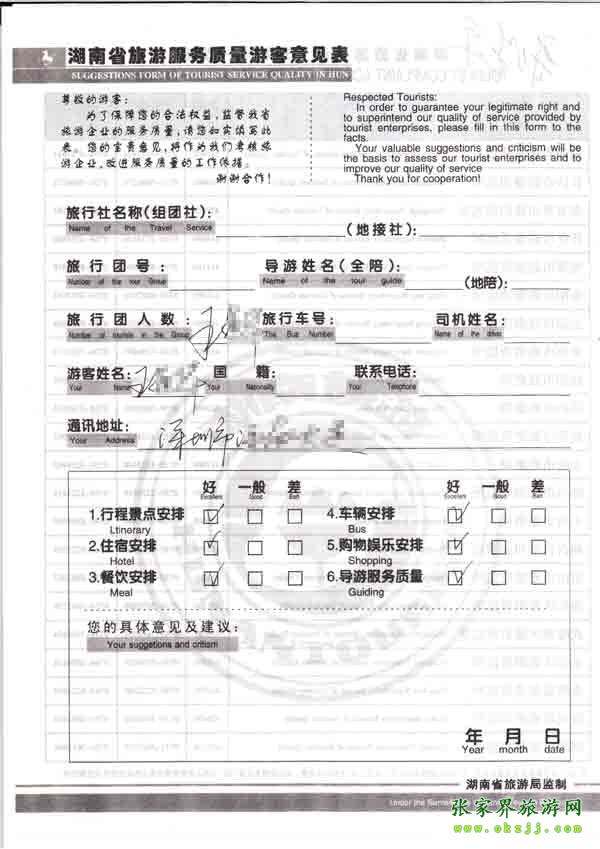 湖南省旅游服务质量游客意见表
SUGGESTIONS FORM OF TOURIST SERVICE QUALITY IN HUN
尊敬的游客：
为了保障您的合法权益，监督我省
旅游企业的服务质量，请您如实填写此
表。您的宝贵意见，将作为我们考核旅
游企业，改进服务质量的工作依据。
谢谢合作！
Respected Tourists:
In order to guarantee your legitimate right and
to superintend our quality of service provided by
tourist enterprises, please fill in this form to the
facts.
Your valuable suggestions and criticism will be
the basis to assess our tourist enterprises and to
improve our quality of service
Thank you for cooperation!
旅行社名称(组团社)： (地接社)：
Name of the Travel Service
旅行团号： 导游姓名(全陪)： (地陪)：
Number of the tour Group Name of the tour guide
旅行团人数： 旅行车号： 司机姓名：
Number of tourists in the Group The Bus Number Name of the driver
游客姓名： 王 国籍： 联系电话：
Your Name Your Nationality Your Telephone
通讯地址： 深圳市
Your Address
好 一般 差 好 一般 差
Excellent Good Bad Excellent Good Bad
1.行程景点安排 ☑ □ □ 4.车辆安排 ☑ □ □
Ltinerary Bus
2.住宿安排 ☑ □ □ 5.购物娱乐安排 ☑ □ □
Hotel Shopping
3.餐饮安排 ☑ □ □ 6.导游服务质量 ☑ □ □
Meal Guiding
您的具体意见及建议：
Your suggetions and critism
年 月 日
Year month date
湖南省旅游局监制
Under the
张家界旅游网
www.okzjj.com